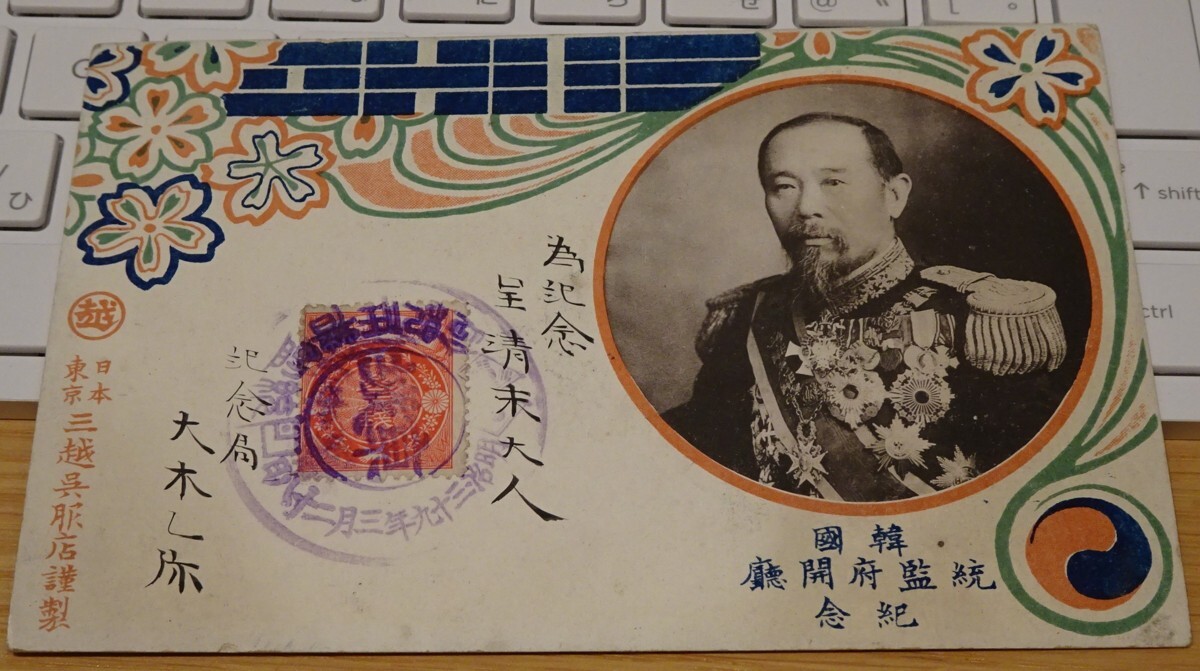 韓國
統監府開廳
紀念
為記念
呈清末大人
記念局
大木乙弥
越
日本
東京
三越呉服店謹製
明治三十九年三月二
shift
ctrl
ひ